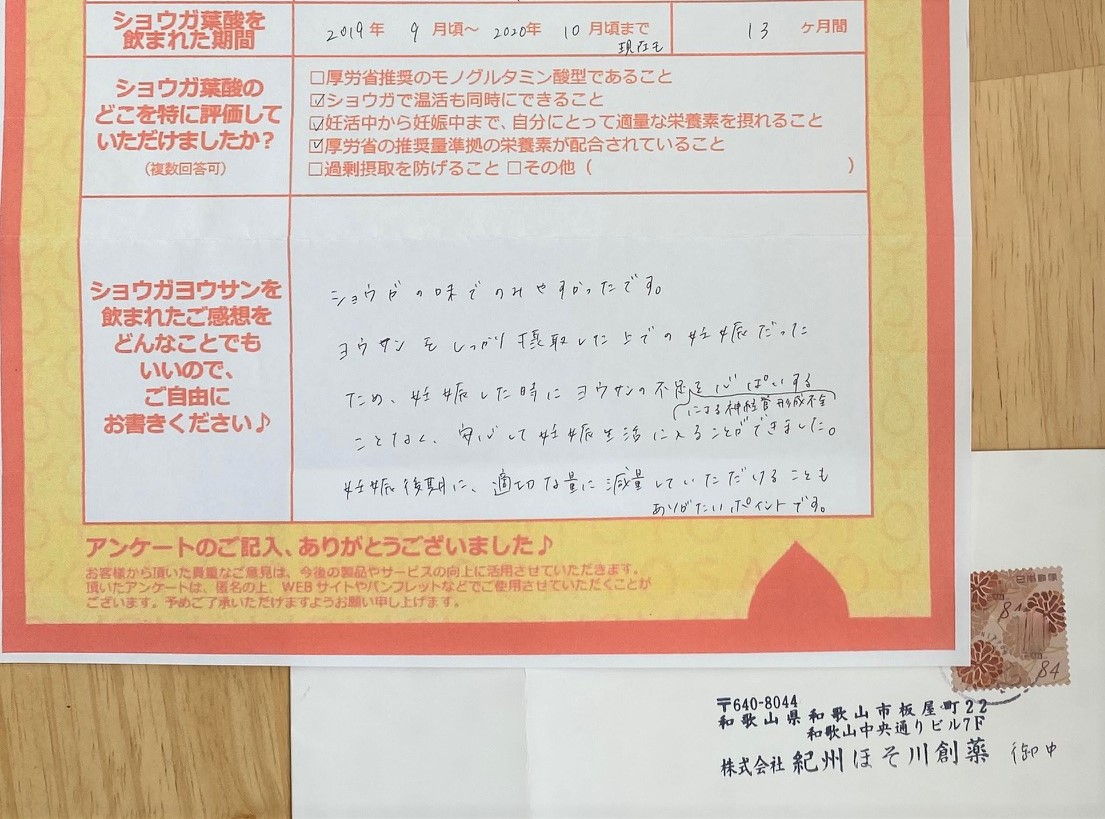 ショウガ葉酸を
飲まれた期間
2019年 9月頃～ 2020年 10月頃まで
現在も
13 ヶ月間
ショウガ葉酸の
どこを特に評価して
いただけましたか？
(複数回答可)
☐厚労省推奨のモノグルタミン酸型であること
☑ショウガで温活も同時にできること
☑妊活中から妊娠中まで、自分にとって適量な栄養素を摂れること
☑厚労省の推奨量準拠の栄養素が配合されていること
☐過剰摂取を防げること ☐その他（ ）
ショウガヨウサンを
飲まれたご感想を
どんなことでも
いいので、
ご自由に
お書きください♪
ショウガの味でのみやすかったです。
ヨウサンをしっかり摂取した上での妊娠だった
ため、妊娠した時にヨウサンの不足を心ぱいする
による神経管形成不全
ことなく、安心して妊娠生活に入ることができました。
妊娠後期に、適切な量に減量していただけることも
ありがたいポイントです。
アンケートのご記入、ありがとうございました♪
お客様から頂いた貴重なご意見は、今後の製品やサービスの向上に活用させていただきます。
頂いたアンケートは、匿名の上、WEBサイトやパンフレットなどでご使用させていただくことが
ございます。予めご了承いただけますようお願い申し上げます。
日本郵便
84
NIPPON
84
〒640-8044
和歌山県和歌山市板屋町22
和歌山中央通りビル7F
株式会社 紀州ほそ川創薬 御中